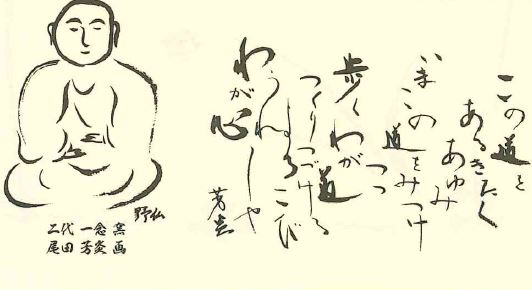 この道を
あるきたく
あゆみ
いまこの道をみつけ
つつ
歩くわが道
つくりつづける
わが心
芳
野仏
二代 一念 窯
尾田 芳 画